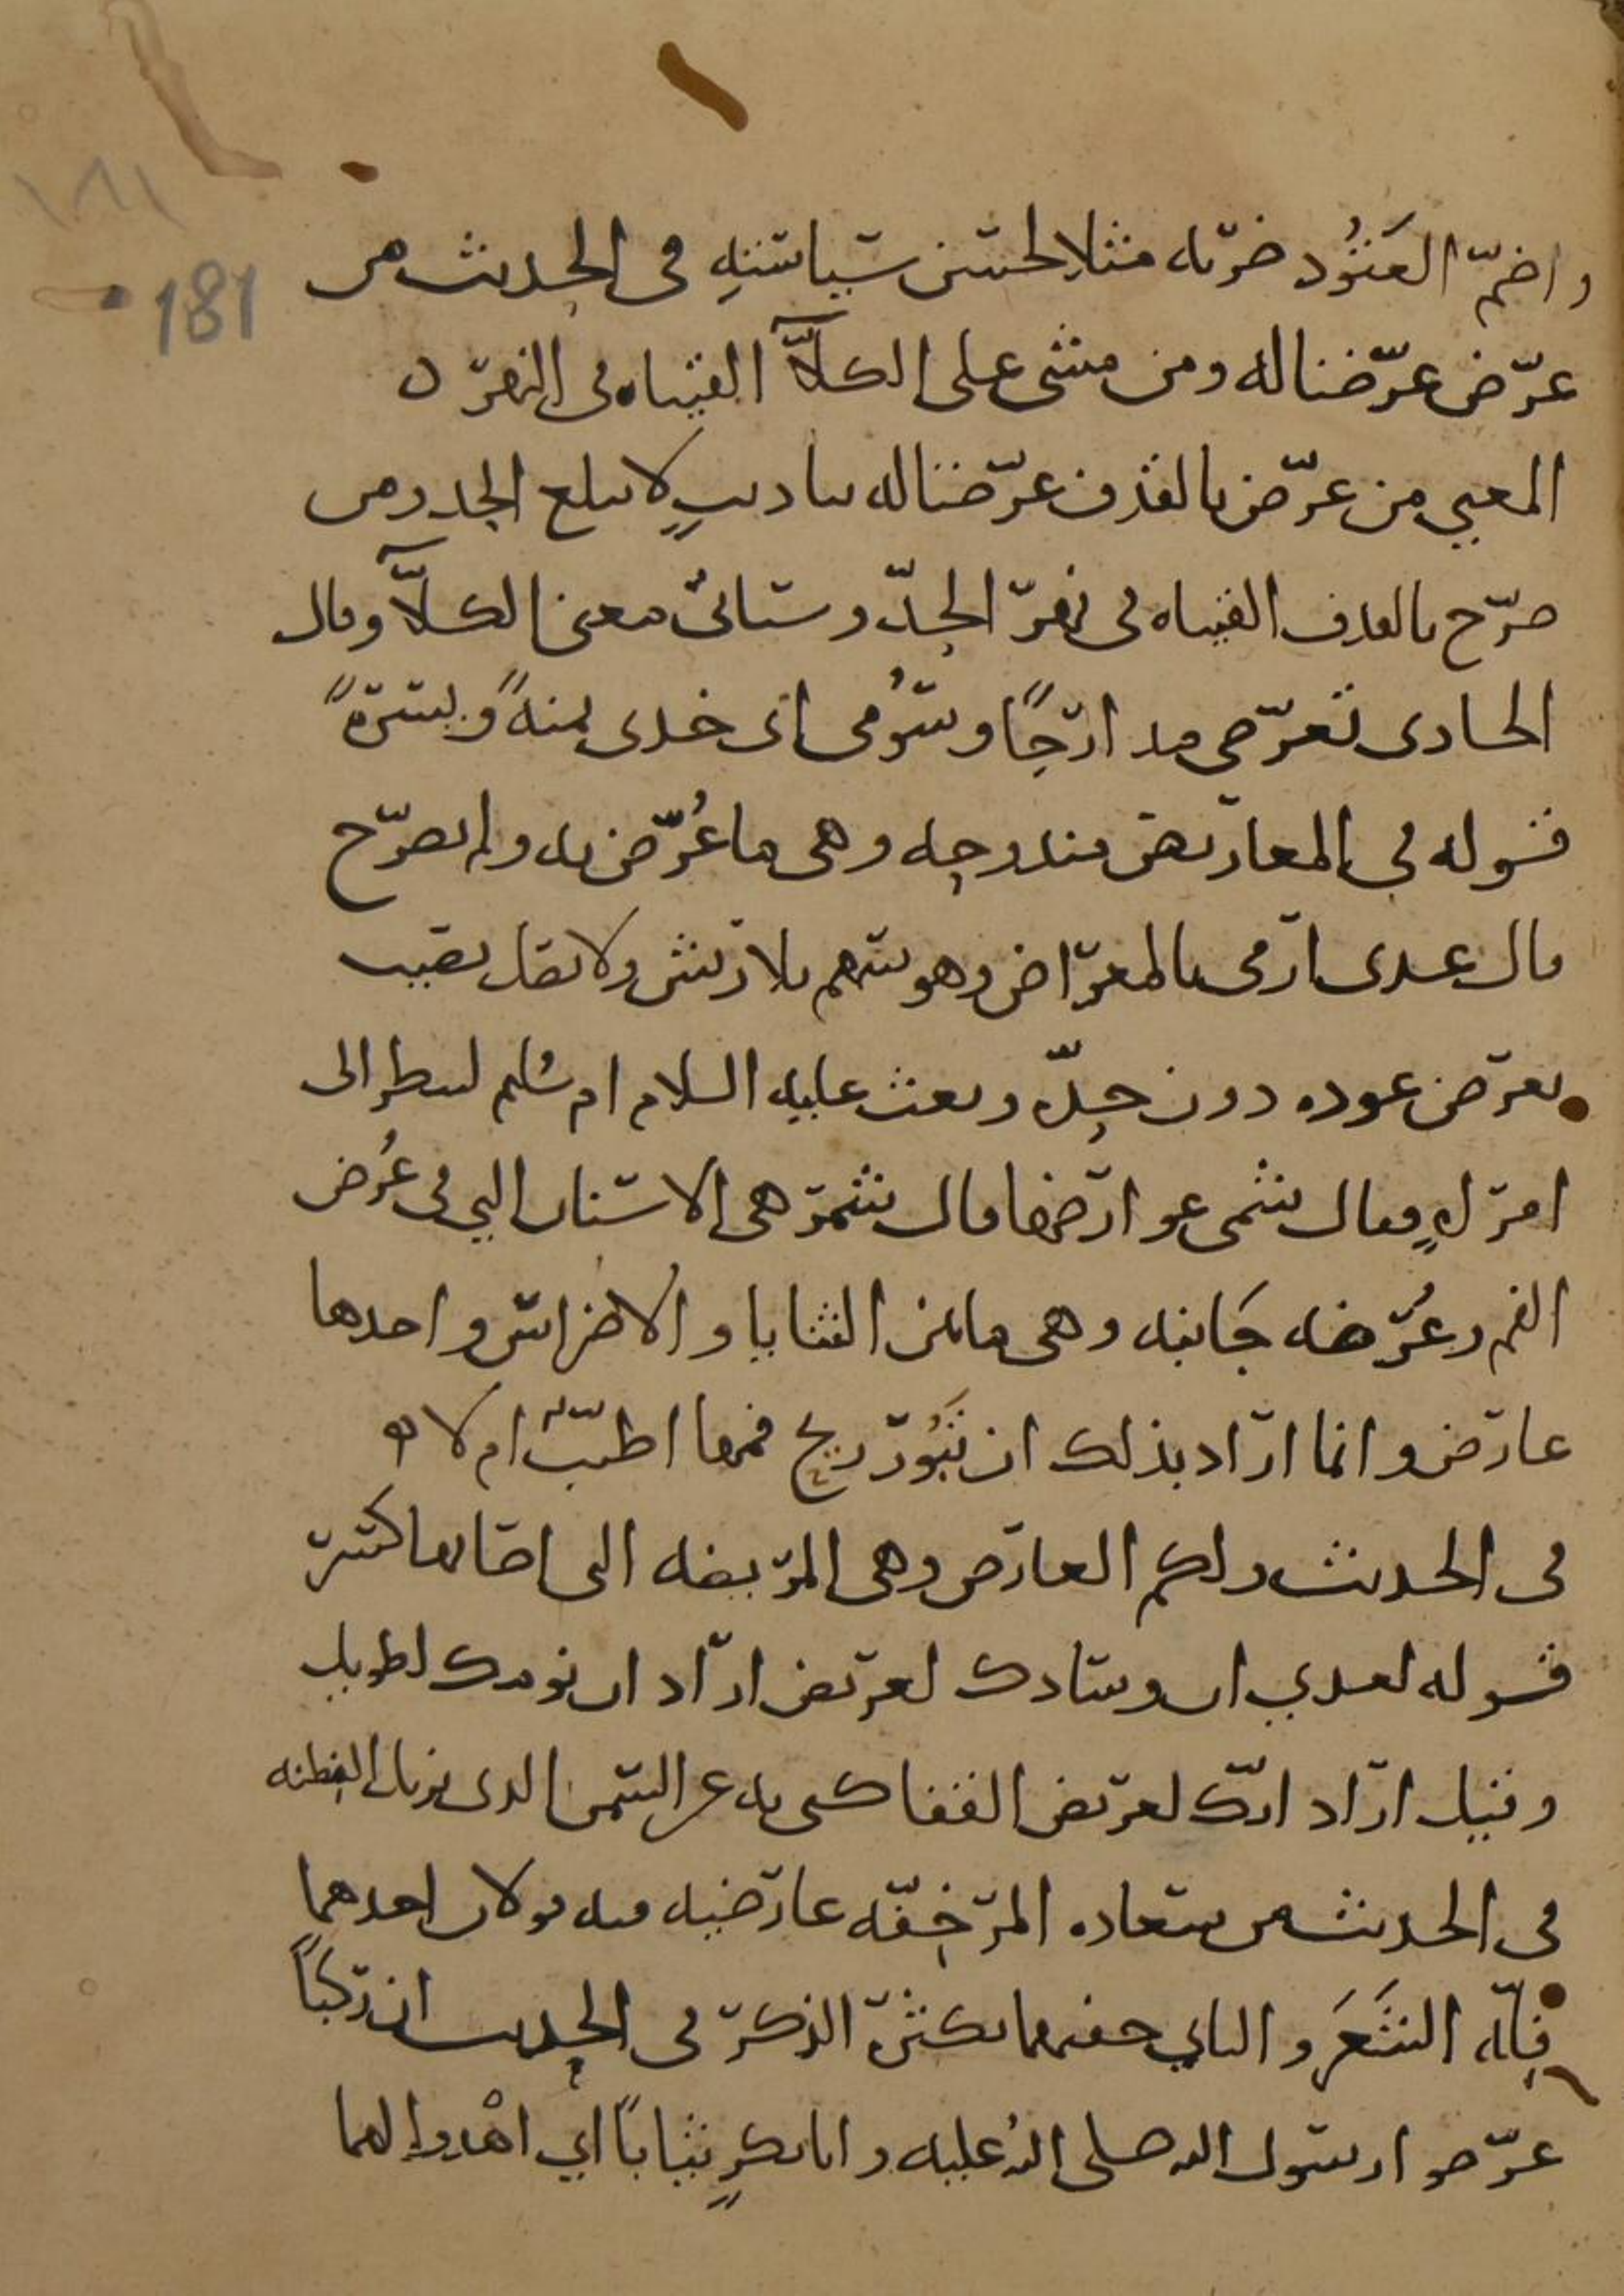 ١٨١
181
واضمّ العَنُود ضربه مثلا لحسن سياسته في الحديث من
عرّض عرّضنا له ومن مشى على الكلّاء القيناه في النهر ن
المعني من عرّض بالقذف عرّضنا له بتاديبٍ لا يبلغ الحد ومن
صرّح بالقذف القيناه في نهر الحدّ وستاتي معنى الكلّاء وقال
الحادى تعرّضي مدارجًا وسُومي اى خذى يمنةً ويسرةً
قوله في المعاريض مندوحه وهى ما عُرّض به ولم يصرّح
قال عدى ارمى بالمعراض وهو سهم بلا ريش ولا نصل يصيب
بعرض عوده دون حدّه وبعث عليه السلام ام سليم لتنظر الى
امراةٍ فقال شمى عوارضها قال شمر هى الاسنان التي في عُرض
الفم وعُرضه جَانبه وهى ما بين الثنايا والاضراس واحدها
عارض وانما اراد بذلك ان تَبُور ريح فمها اطيّب ام لا
في الحديث ولكم العارض وهى المريضه التى اصابها كسر
قوله لعدي ان وسادك لعريض اراد ان نومك لطويل
وقيل اراد انك لعريض القفا كنى به عن السمن الذى يزيل الفطنه
في الحديث من سعاده المرء خفّه عارضيه فيه قولان احدهما
قلّه الشَعَر والثاني خفتهما بكثرة الذكر في الحديث ان ركبًا
عرّضوا رسول الله صلى الله عليه وابا بكرٍ ثيابًا أي اهْدوا لهما